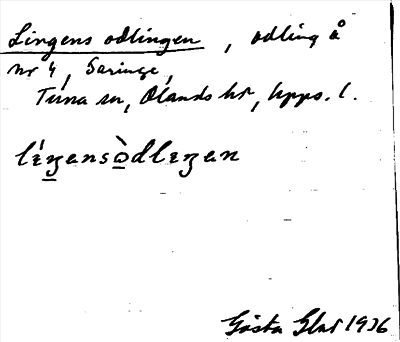 Lingens odlingen, odling å
nr 4, Saringe,
Tuna sn, Olands hd, Upps. l.
léŋensòdleŋan
Gösta Glas 1936